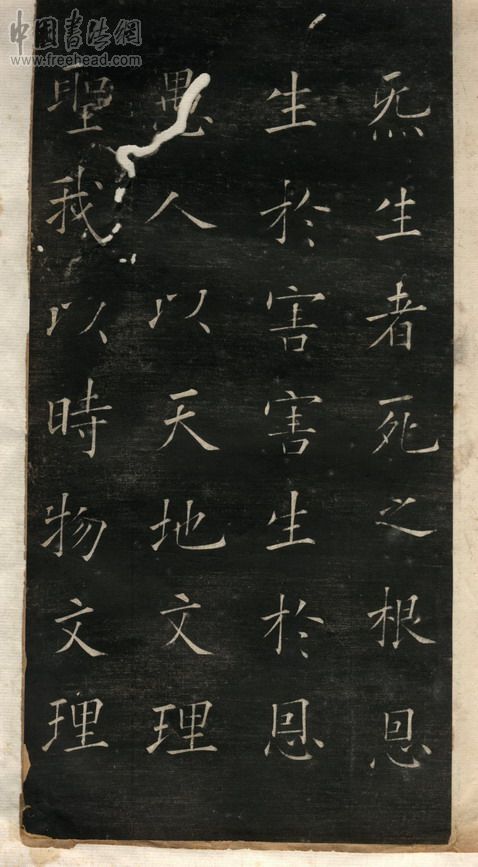 中国书法網
www.freehead.com
炁生者死之根恩
生於害害生於恩
愚人以天地文理
聖我以時物文理